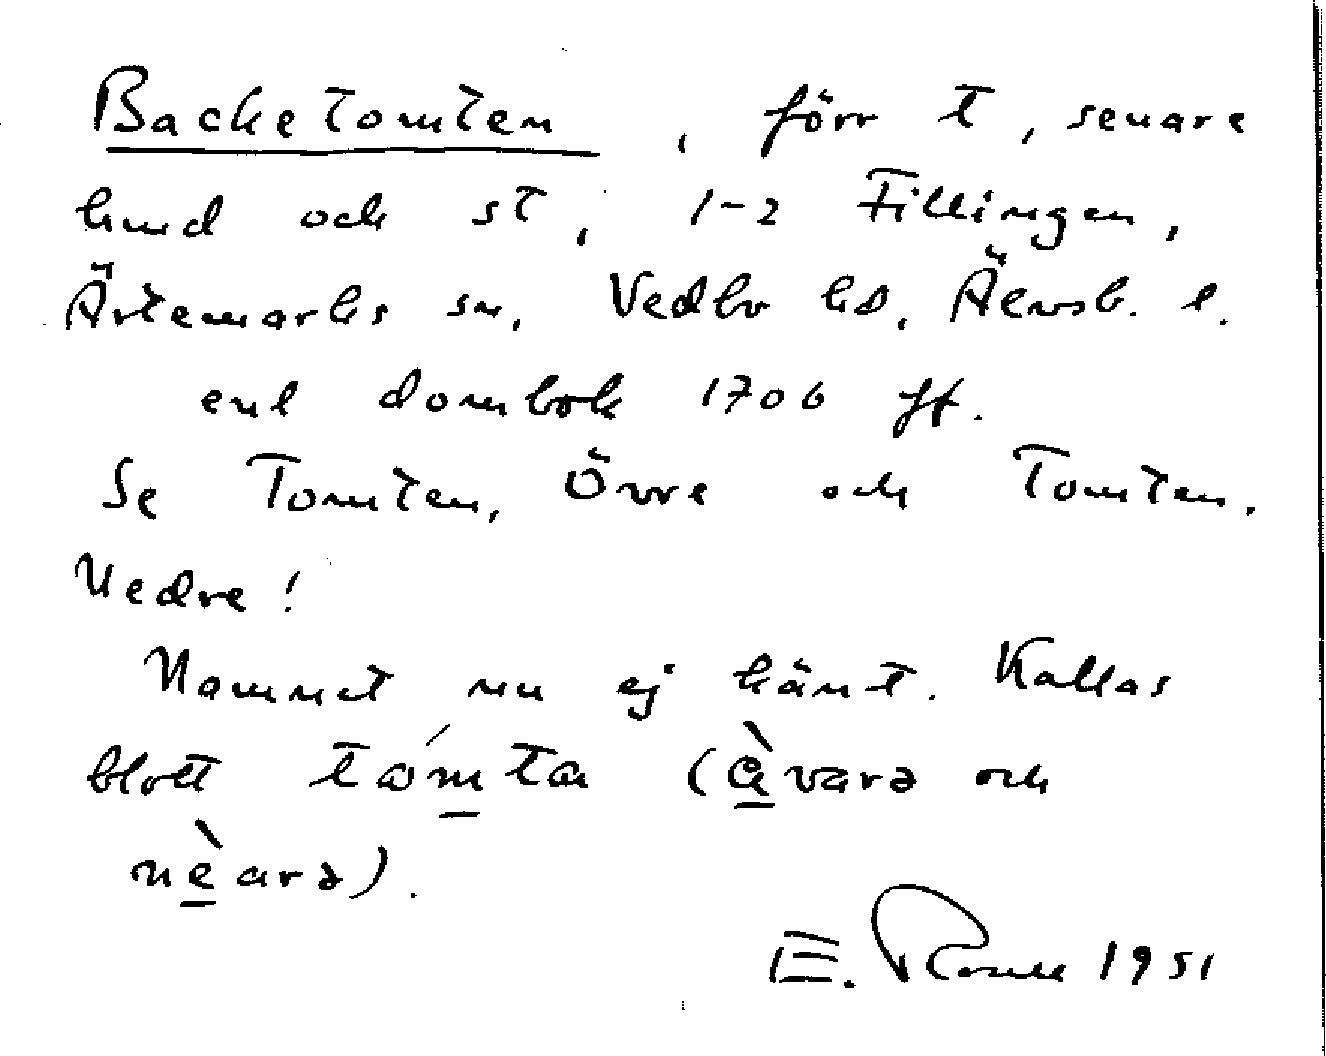 Backetomten, förr t, senare
lund och st, 1-2 Fillingen,
Ärtemarks sn, Vedbo hd, Älvsb. l.
enl dombok 1706 ff.
Se Tomten, Övre och Tomten.
Nedre!
Namnet nu ej känt. Kallas
blott tómta (àvarə och
nèarə).
E. 1951